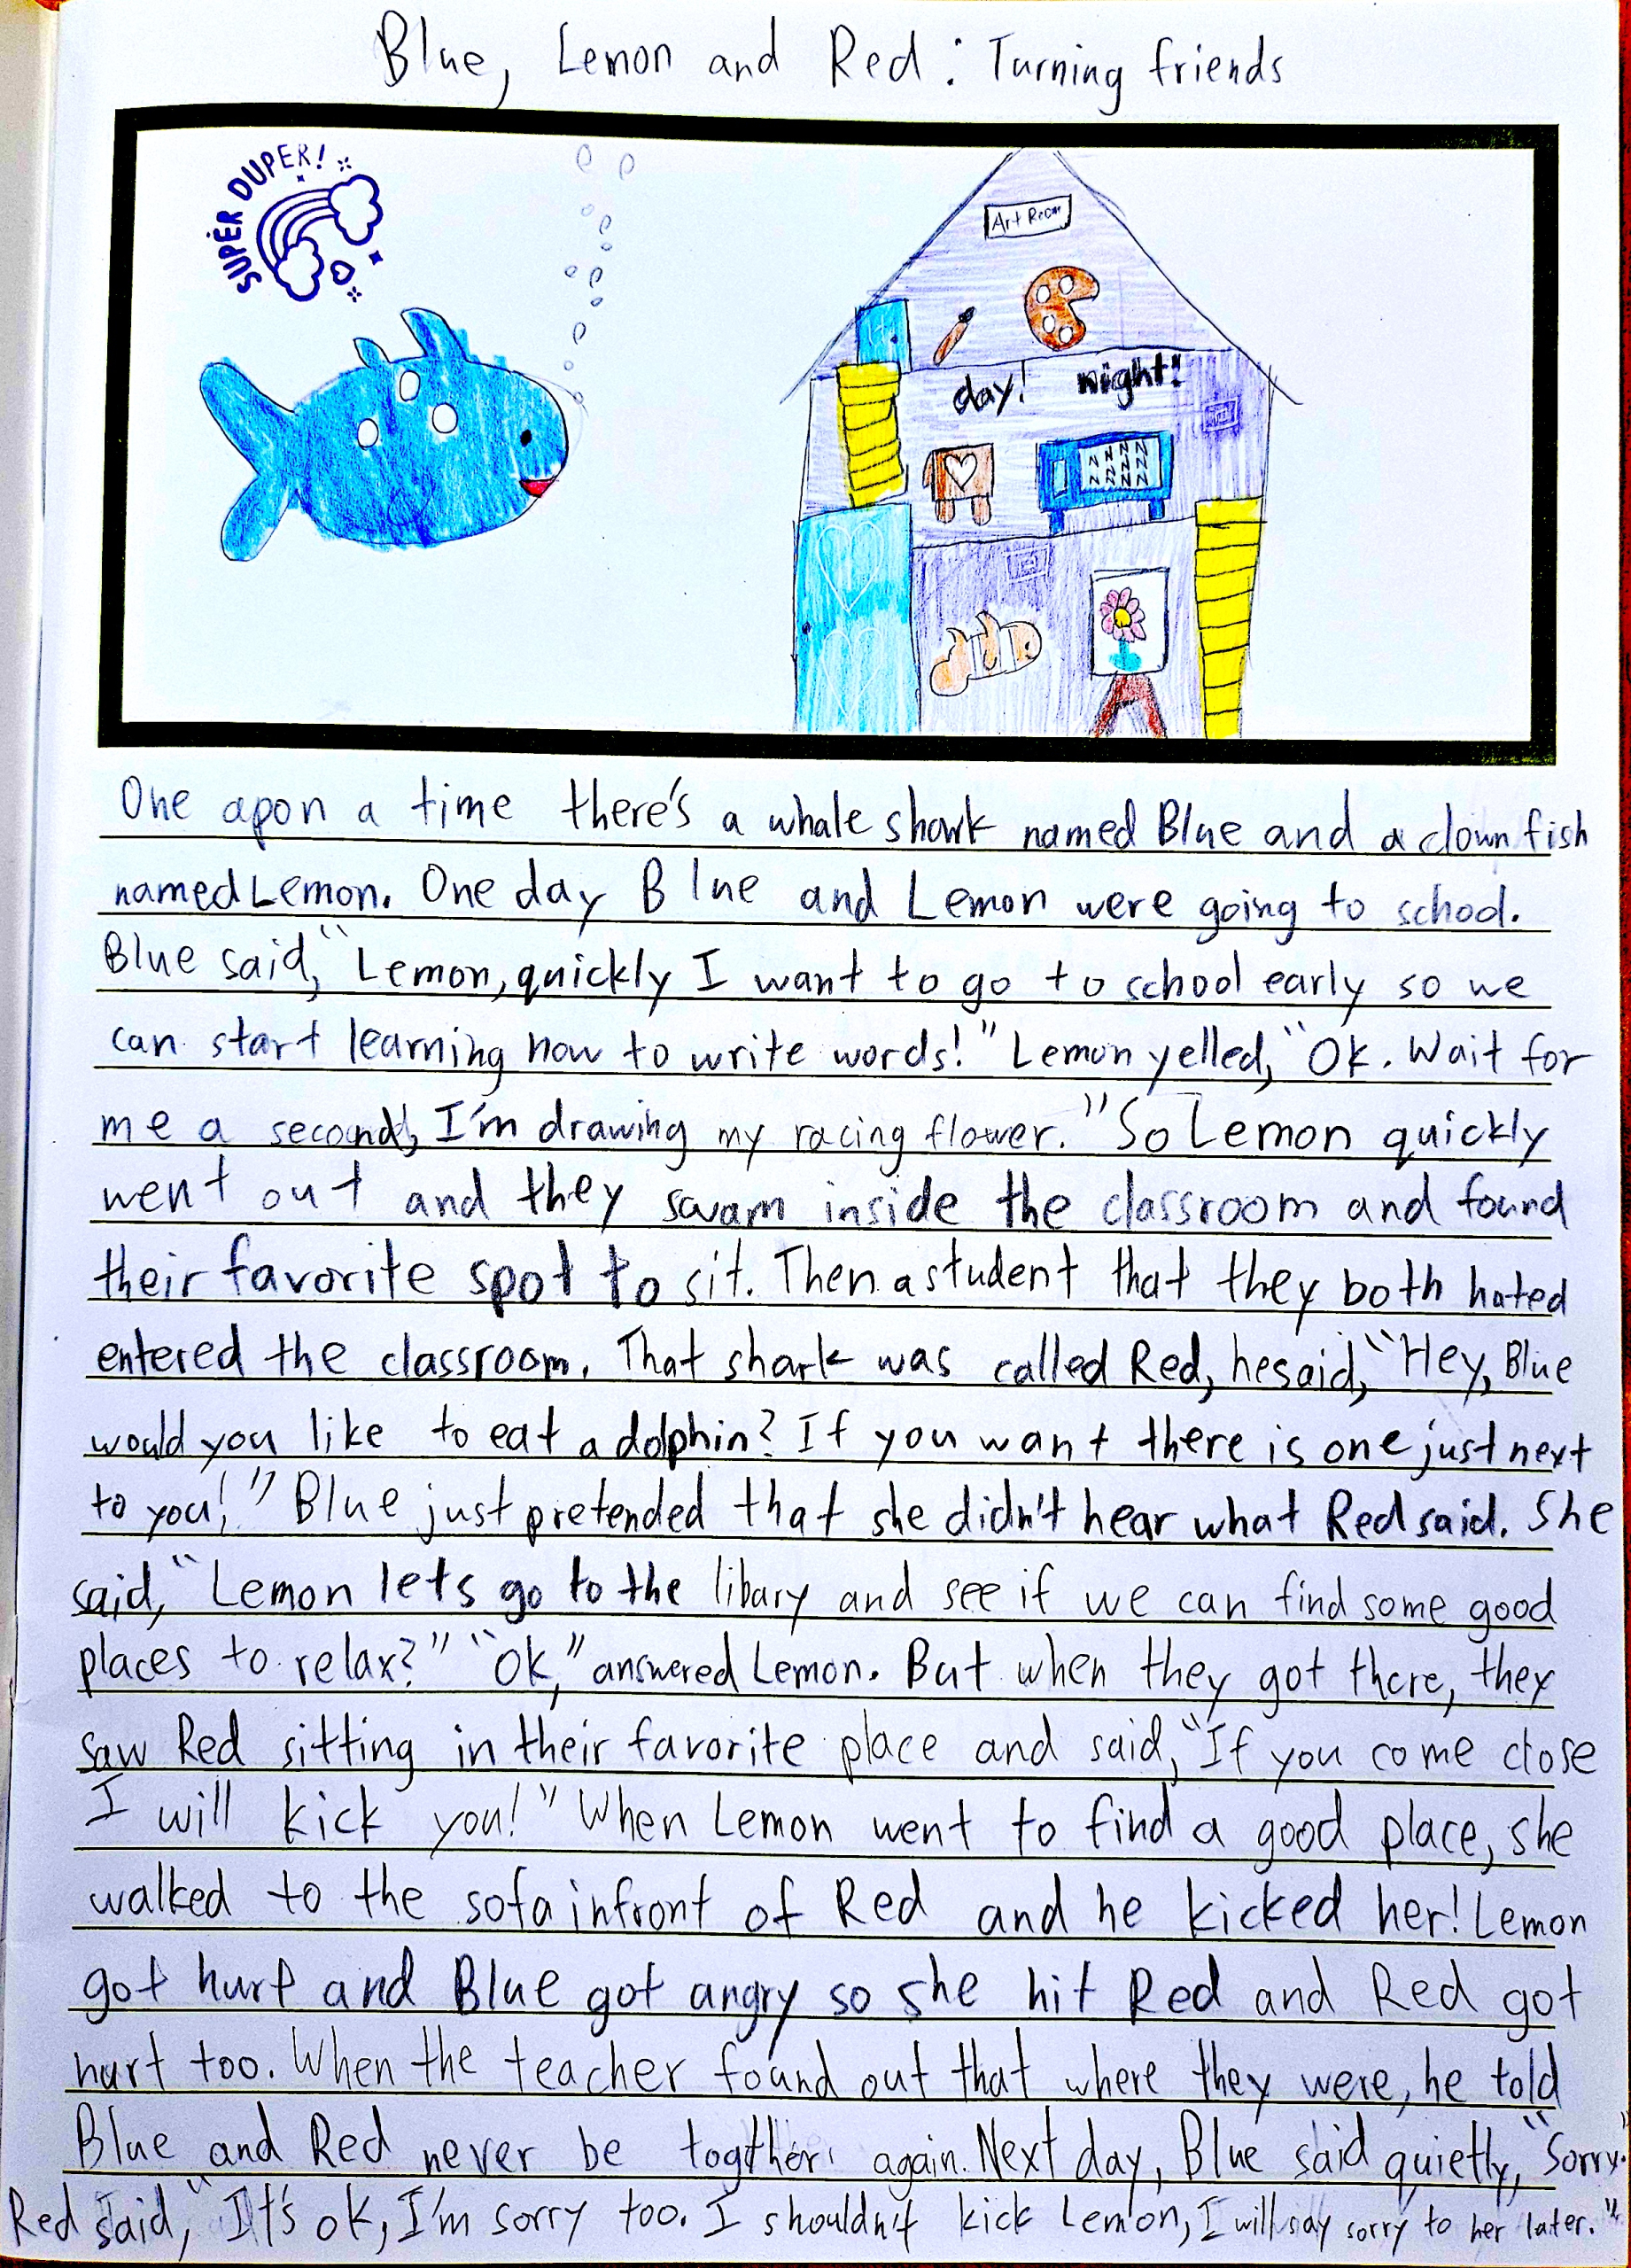 Blue, Lemon and Red: Turning friends
SUPER DUPER!
Art Room
day! night!
N N N N
N N N N
N N N N
One apon a time there's a whale shark named Blue and a clown fish
named Lemon. One day Blue and Lemon were going to school.
Blue said, "Lemon, quickly I want to go to school early so we
can start learning how to write words!" Lemon yelled, "Ok. Wait for
me a second, I'm drawing my racing flower." So Lemon quickly
went out and they swam inside the classroom and found
their favorite spot to sit. Then a student that they both hated
entered the classroom. That shark was called Red, he said, "Hey, Blue
would you like to eat a dolphin? If you want there is one just next
to you!" Blue just pretended that she didn't hear what Red said. She
said, "Lemon lets go to the libary and see if we can find some good
places to relax?" "Ok," answered Lemon. But when they got there, they
saw Red sitting in their favorite place and said, "If you come close
I will kick you!" When Lemon went to find a good place, she
walked to the sofa infront of Red and he kicked her! Lemon
got hurt and Blue got angry so she hit Red and Red got
hurt too. When the teacher found out that where they were, he told
Blue and Red never be togther again. Next day, Blue said quietly, "Sorry."
Red said, "It's ok, I'm sorry too. I shouldn't kick Lemon, I will say sorry to her later."